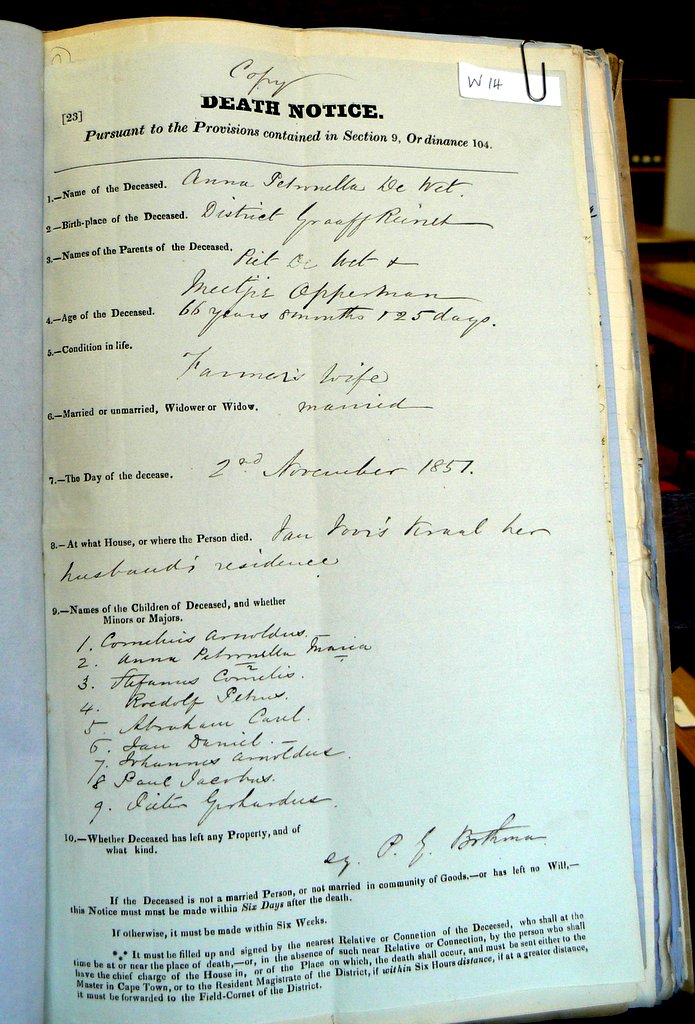 Copy
W 14
[23]
DEATH NOTICE.
Pursuant to the Provisions contained in Section 9, Ordinance 104.
1.—Name of the Deceased. Anna Petronella De Wet.
2.—Birth-place of the Deceased. District Graaff Reinet
3.—Names of the Parents of the Deceased. Piet De Wet &
Meetjie Opperman
4.—Age of the Deceased. 66 years 8 months & 25 days.
5.—Condition in life.
Farmer's Wife
6.—Married or unmarried, Widower or Widow. married
7.—The Day of the decease. 2nd November 1851.
8.—At what House, or where the Person died. Jan Kraal her
husband's residence
9.—Names of the Children of Deceased, and whether
Minors or Majors.
1. Cornelius Arnoldus.
2. Anna Petronella Maria
3. Stefanus Cornelis.
4. Roedolf Petrus.
5 Abraham Carel.
6. Jan Daniel. —
7. Johannes Arnoldus.
8 Paul Jacobus.
9. Pieter Gerhardus.
10.—Whether Deceased has left any Property, and of
what kind.
P. Bothma
If the Deceased is not a married Person, or not married in community of Goods.—or has left no Will,—
this Notice must must be made within Six Days after the death.
If otherwise, it must be made within Six Weeks.
*** It must be filled up and signed by the nearest Relative or Connetion of the Deceesed, who shall at the
time be at or near the place of death,—or, in the absence of such near Relative or Connection, by the person who shall
have the chief charge of the House in, or of the Place on which, the death shall occur, and must be sent either to the
Master in Cape Town, or to the Resident Magistrate of the District, if within Six Hours distance, if at a greater distance,
it must be forwarded to the Field-Cornet of the District.